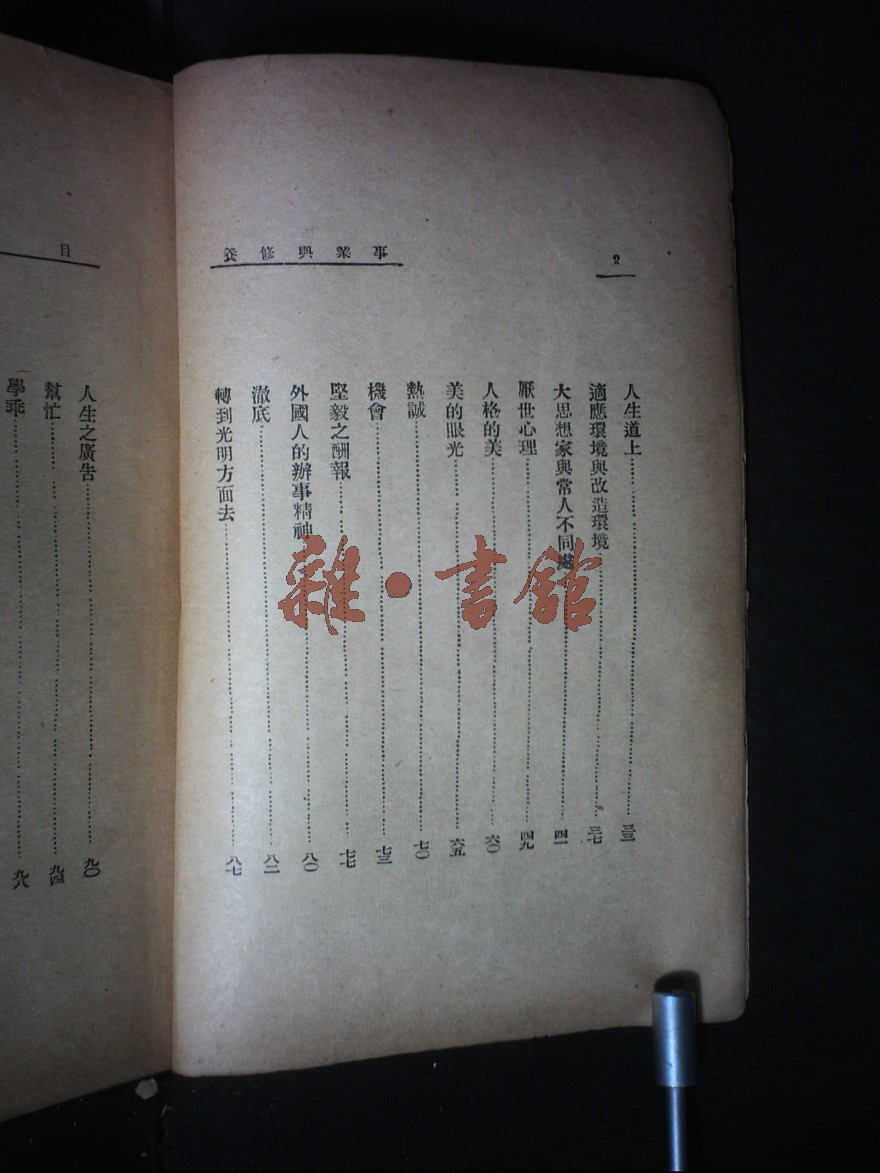 2
事業與修養
人生道上 三三
適應環境與改造環境 三七
大思想家與常人不同處 四一
厭世心理 四九
人格的美 六〇
美的眼光 六五
熱誠 七〇
機會 七三
堅毅之酬報 七七
外國人的辦事精神 八〇
澈底 八二
轉到光明方面去 八七
目
人生之廣告 九〇
幫忙 九四
學乖
雜·書館